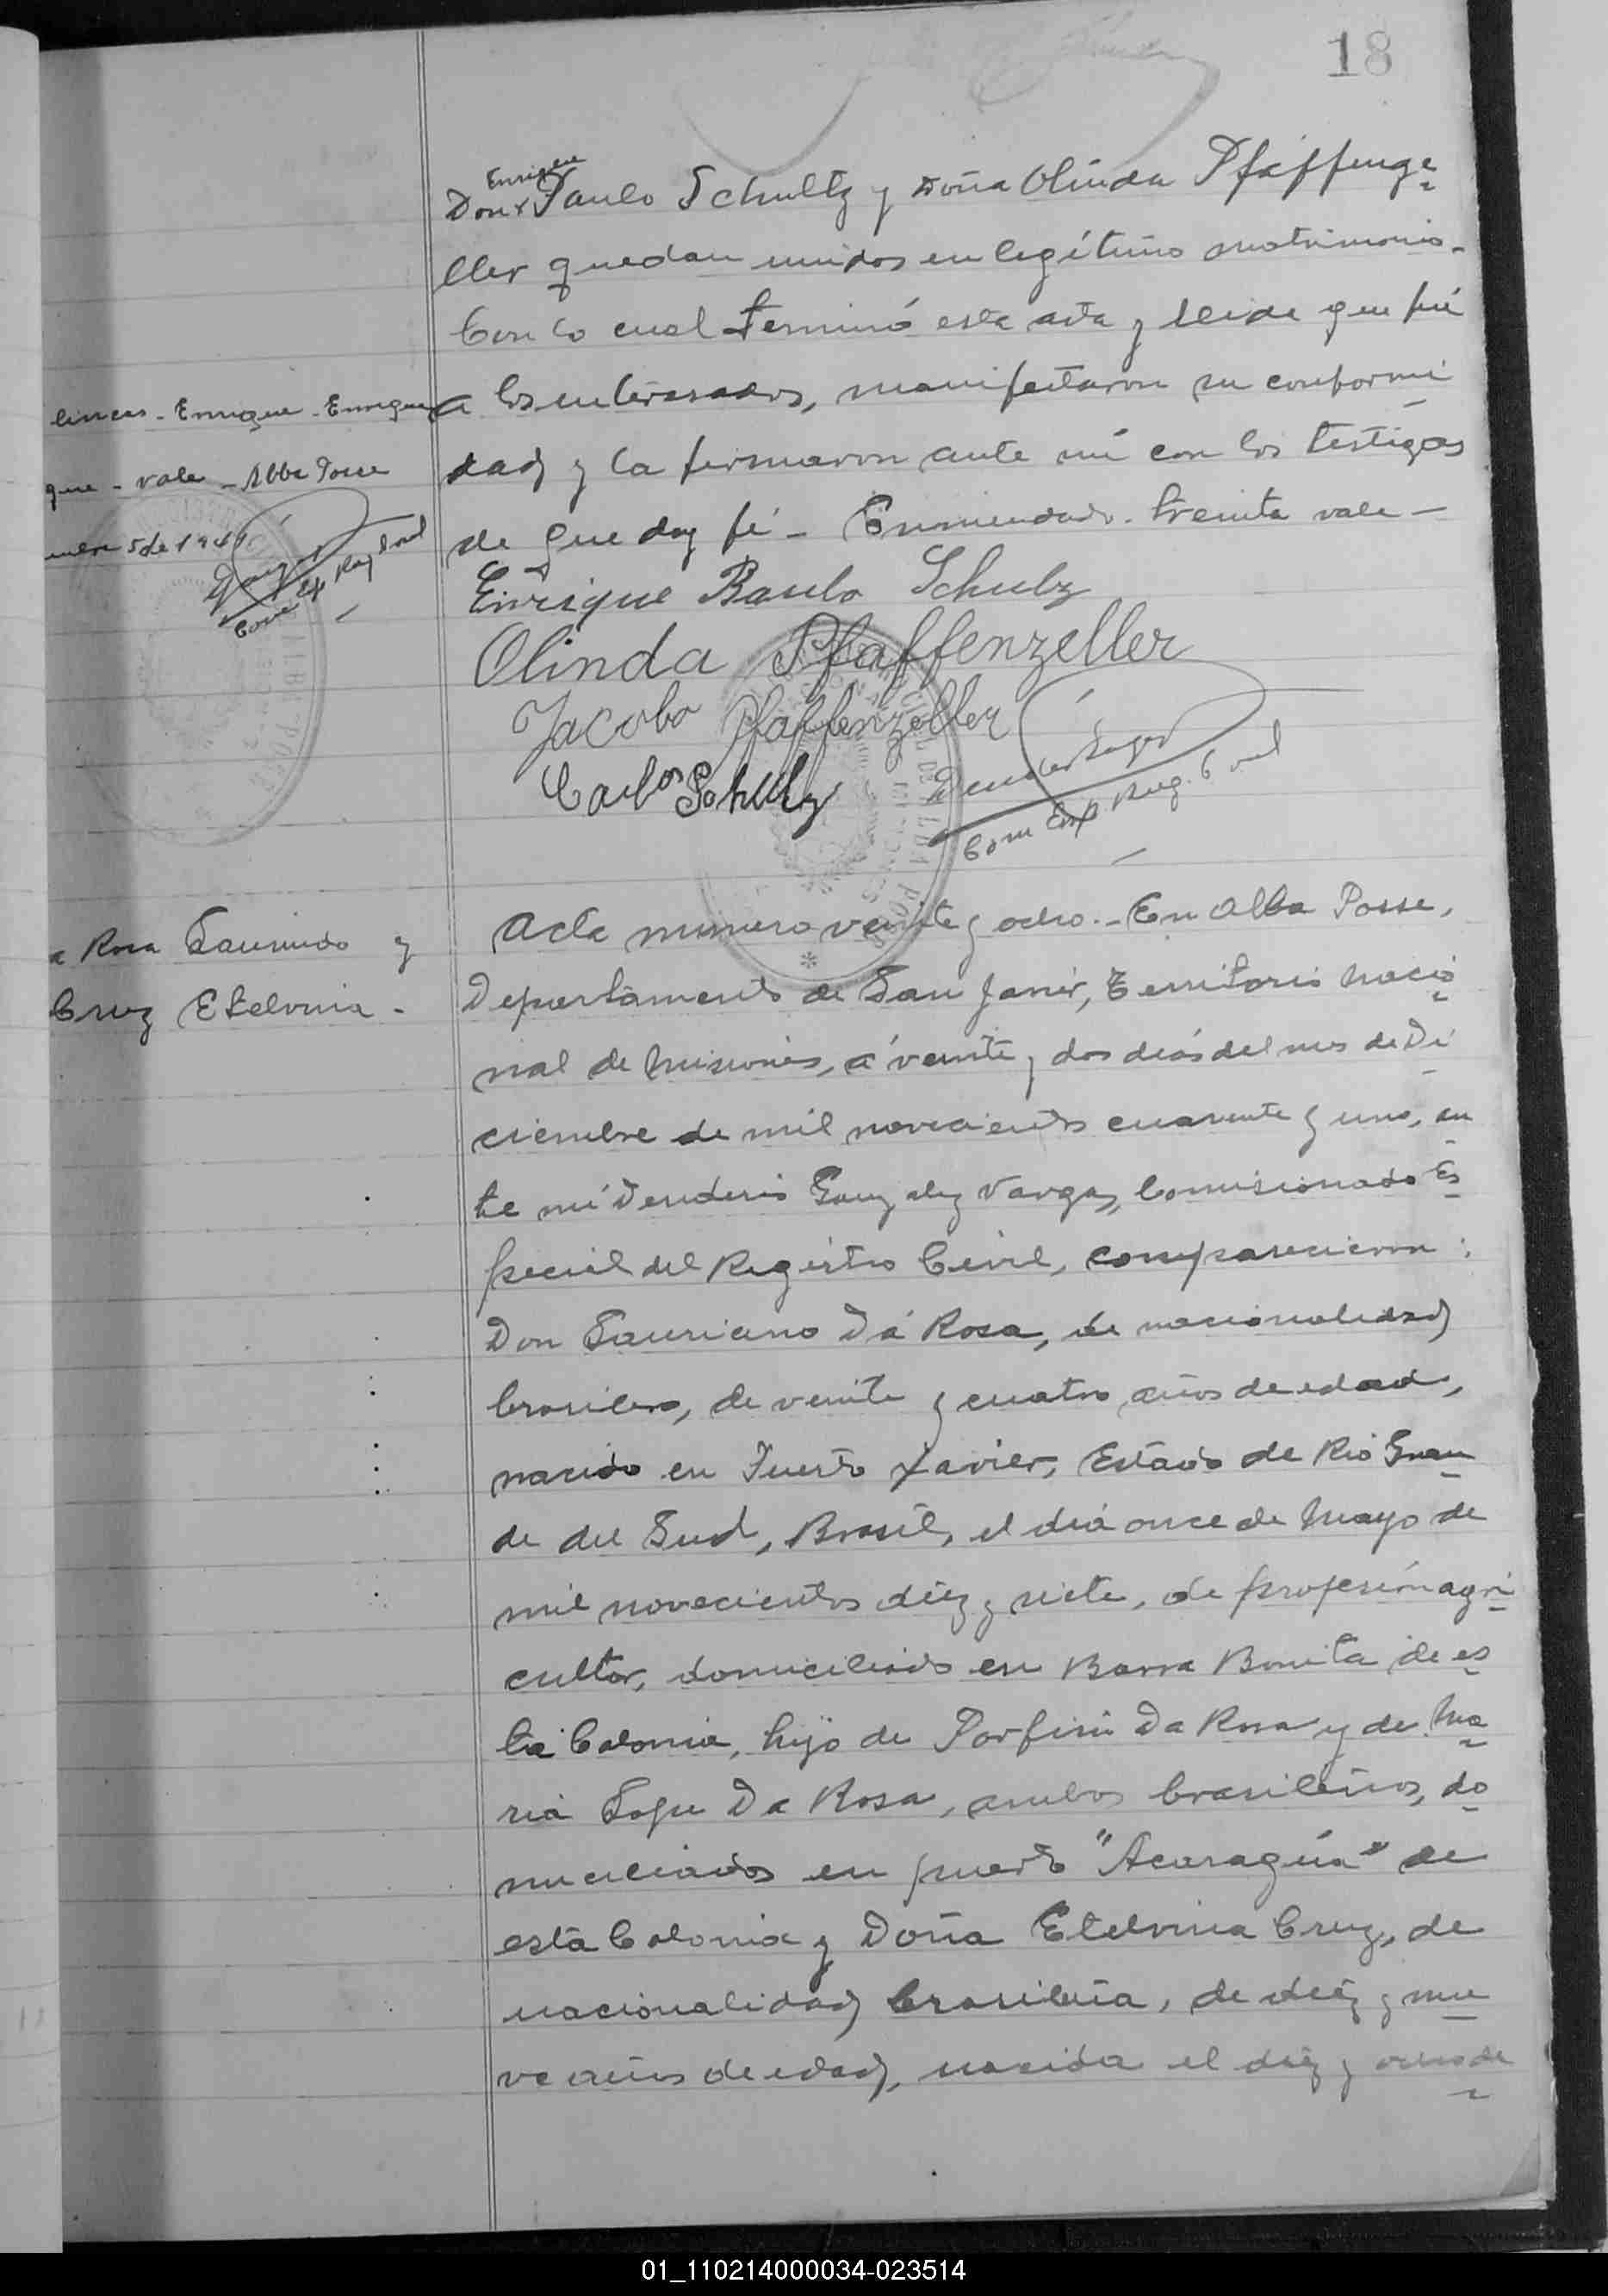 18
Enrique
Don Paulo Schultz y Doña Olinda Pfaffenze
ller quedan unidos en legítimo matrimonio.-
Con lo cual terminó esta acta y leida que fué
lineas - Enrique - Enrique
a los interesados, manifestaron su conformi
dad y la firmaron ante mí con los testigos
que - vale - Alba Posse
de que doy fé - Enmendado - treinta vale -
5 de 1941
Enrique Paulo Schulz
Olinda Pfaffenzeller
Jacobo Pfaffenzeller
Carlos Schulz
Com Esp Reg. Civil
a Rosa Laurindo y
Cruz Etelvina -
Acta numero veinte y ocho.- En Alba Posse,
Departamento de San Javier, Territorio Nacio
nal de Misiones, á veinte y dos dias del mes de Di
ciembre de mil novecientos cuarenta y uno, an
te mí Desiderio Gonzalez Vargas, Comisionado Es
pecial del Registro Civil, comparecieron:
Don Lauriano Dá Rosa, de nacionalidad
brasilero, de veinte y cuatro años de edad,
nacido en Puerto Xavier, Estado de Rio Gran
de del Sud, Brasil, el dia once de Mayo de
mil novecientos diez y siete, de profesión agri
cultor, domiciliado en Barra Bonita de es
ta Colonia, hijo de Porfirio Da Rosa y de Ma
ria Da Rosa, ambos brasileños, do
miciliados en puerto "Acaraguá" de
esta Colonia y Doña Etelvina Cruz, de
nacionalidad brasileña, de diez y nue
ve años de edad, nacida el diez y ocho de
01_110214000034-023514